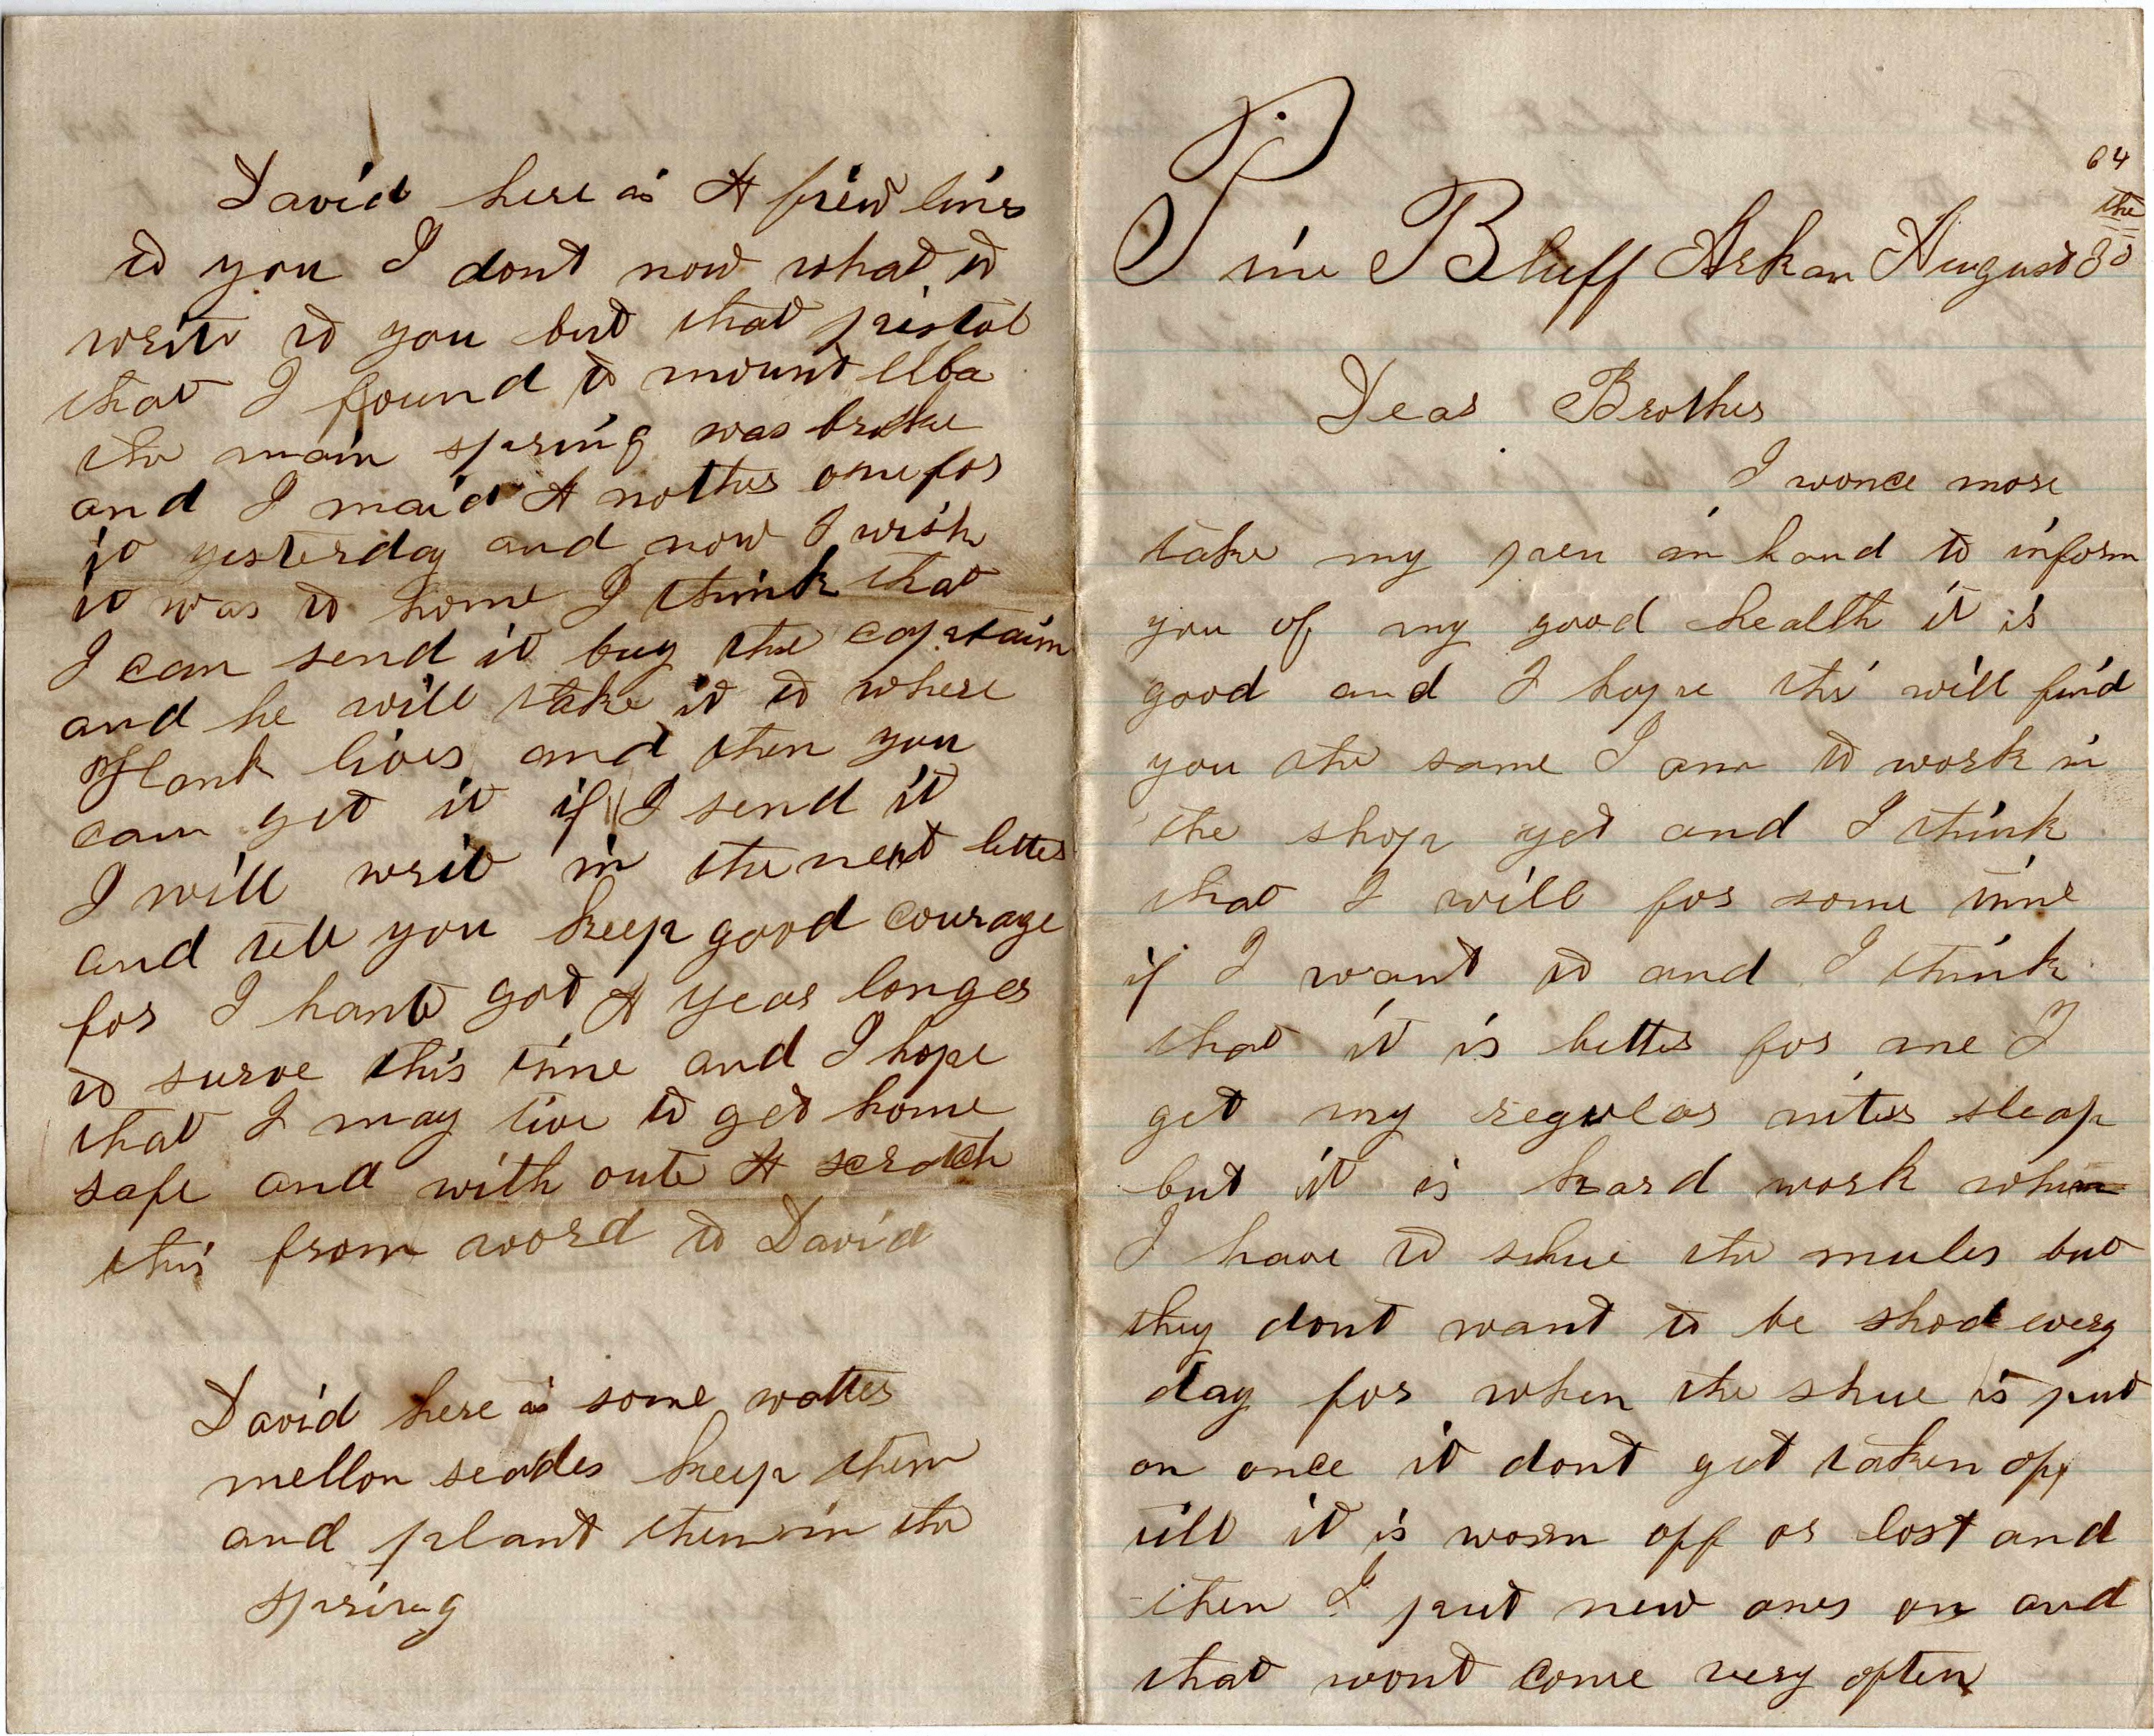 David here is A friew lines
to you I dont now what to
write to you but that pistol
that I found to mount elba
the main spring was broke
and I maid A nother one for
it yesterday and now I wish
it was to home I think that
I can send it buy the captain
and he will take it to where
Hank lives and then you
can get it if I send it
I will write in the next letter
and tell you keep good courage
for I hant got A year longer
to surve this time and I hope
that I may live to get home
safe and with oute A scratch
this from word to David
David here is some watter
mellon seades keep them
and plant them in the
spring
64
the
Pine Bluff Arkan August 30
Dear Brother
I wonce more
take my pen in hand to inform
you of my good health it is
good and I hope this will find
you the same I am to work in
the shop yet and I think
that I will for some time
if I want to and I think
that it is better for me I
get my regular nites sleap
but it is hard work when
I have to shue the mules but
they dont want to be shod every
day for when the shue is put
on once it dont get taken off
till it is worn off or lost and
then I put new ones on and
that wont come very often